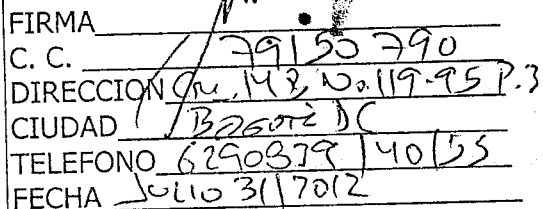 FIRMA
C. C. 79150790
DIRECCION Cra. 14 B No. 119-95 P.3
CIUDAD Bogotá DC
TELEFONO 6290839 | 40 | 55
FECHA Julio 31/2012